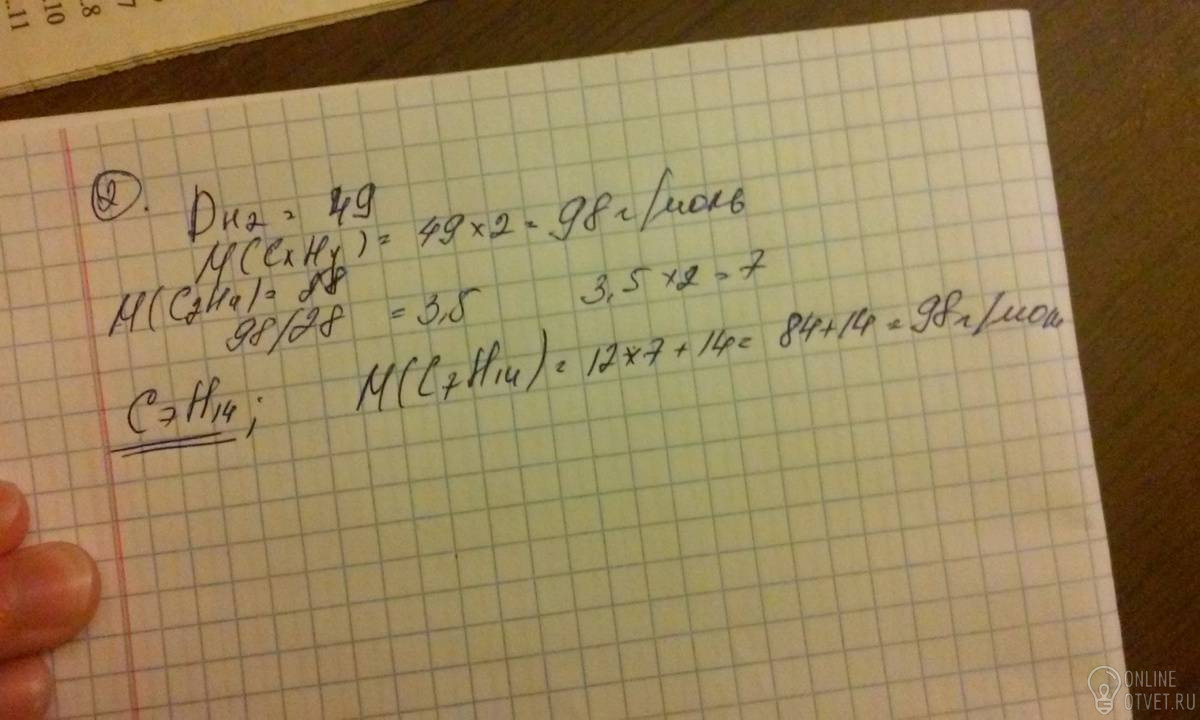 .11
.10
.8
7
②.
DH2 = 49
M(CxHy) = 49 × 2 = 98 г/моль
M(C2H4) = 28
98/28 = 3,5 3,5 × 2 = 7
C7H14; M(C7H14) = 12 × 7 + 14 = 84 + 14 = 98 г/моль
ONLINE
OTVET.RU